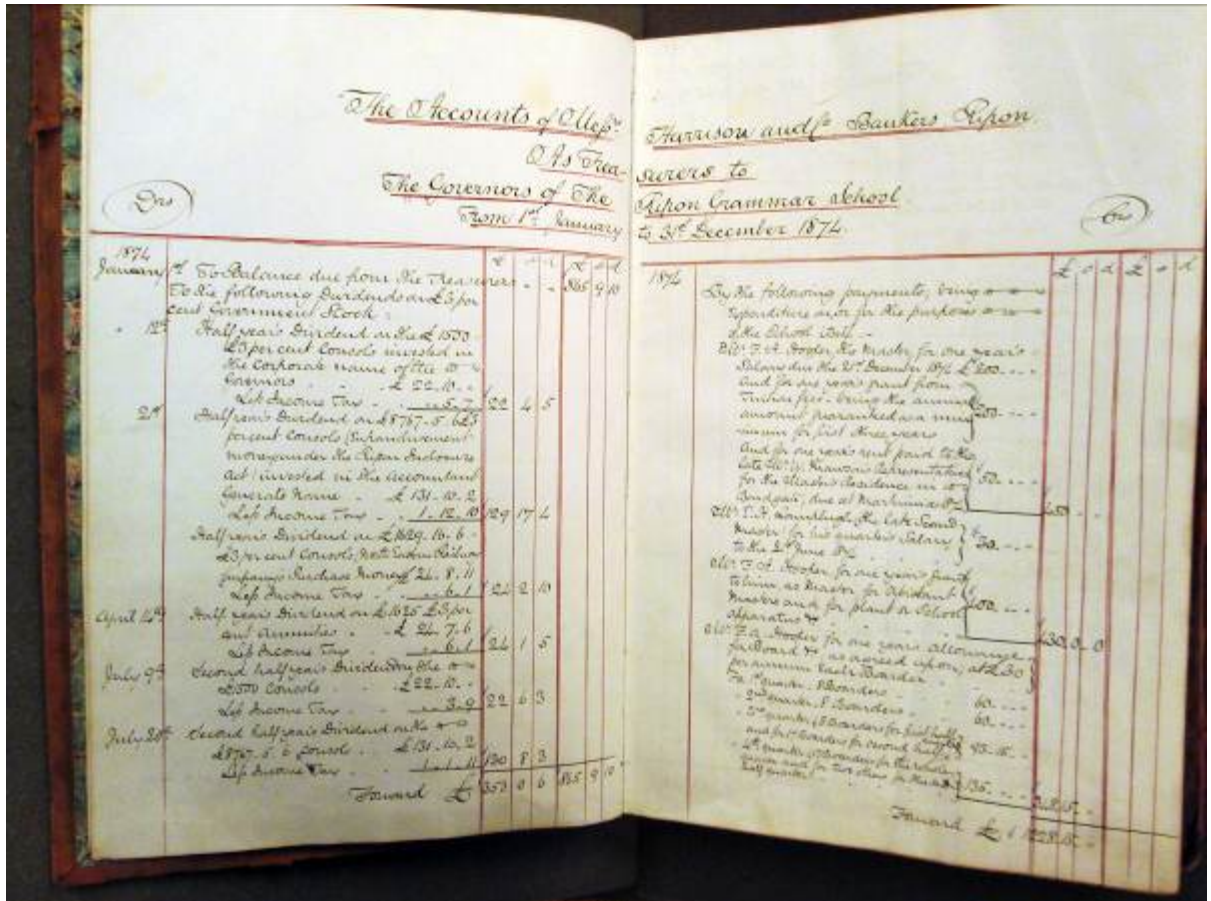 The Accounts of Messrs
As Trea-
The Governors of The
From 1st January
Drs
£ s d £ s d
1874
January 1st To Balance due from the Treasurers - - 865 9 10
To the following Dividends on £3 per
cent Government Stock:
" 12th Half year's Dividend on the £1500
£3 per cent Consols invested in
the corporate name of the
Governors - - £22.10.-
Less Income Tax - 5.7 22 4 5
21st Half year's Dividend on £8767.5.6 £3
percent Consols (Enfranchisement
money under the Ripon Inclosure
Act) invested in the Accountant
General's Name - £131.10.2
Less Income Tax - 1.12.10 129 17 4
Half year's Dividend on £1629.16.6
£3 per cent Consols, North Eastern Railway
Company's Purchase Money £24.8.11
Less Income Tax - 6.1 24 2 10
April 14th Half year's Dividend on £1625 £3 per
cent Annuities - £24.7.6
Less Income Tax - 6.1 24 1 5
July 9th Second half year's Dividend on the
£1500 Consols - £22.10.-
Less Income Tax - 3.9 22 6 3
July 20th Second half year's Dividend on the
£8767.5.6 Consols - £131.10.2
Less Income Tax - 1.1.11 130 8 3
Forward £ 353 0 6 865 9 10
Harrison and Co Bankers Ripon
surers to
Ripon Grammar School
to 31st December 1874.
Crs
£ s d £ s d
1874
By the following payments, being
Expenditure on or for the purposes
of the School Viz.
Mr. F. A. Hooper, the Master, for one year's
Salary due the 21st December 1874 £200.-.-
And for one year's grant from
Tuition fees - being the annual
amount guaranteed as a mini
mum for first three years 200.-.-
And for one year's rent paid to the
late Representatives
for the Master's Residence in
Bondgate, due at Martinmas 50.-.-
450 - -
the late Second
Master for his quarter's Salary
to the 24th June 30.-.-
Mr. F. A. Hooper for one year's grant
to him as Master for Assistant
Masters and for plant & School
Apparatus
Mr. F. A. Hooper for one year's allowance
for Board as agreed upon, at £30
per annum each Boarder
For 1st quarter, 8 Boarders - 60.-.-
2nd quarter, 8 Boarders - 60.-.-
3rd quarter, Boarders for first half
and for Boarders for second half 93.15.-
4th quarter, Boarders for the whole
quarter and for two others for the
half quarter 135.-.-
Forward £